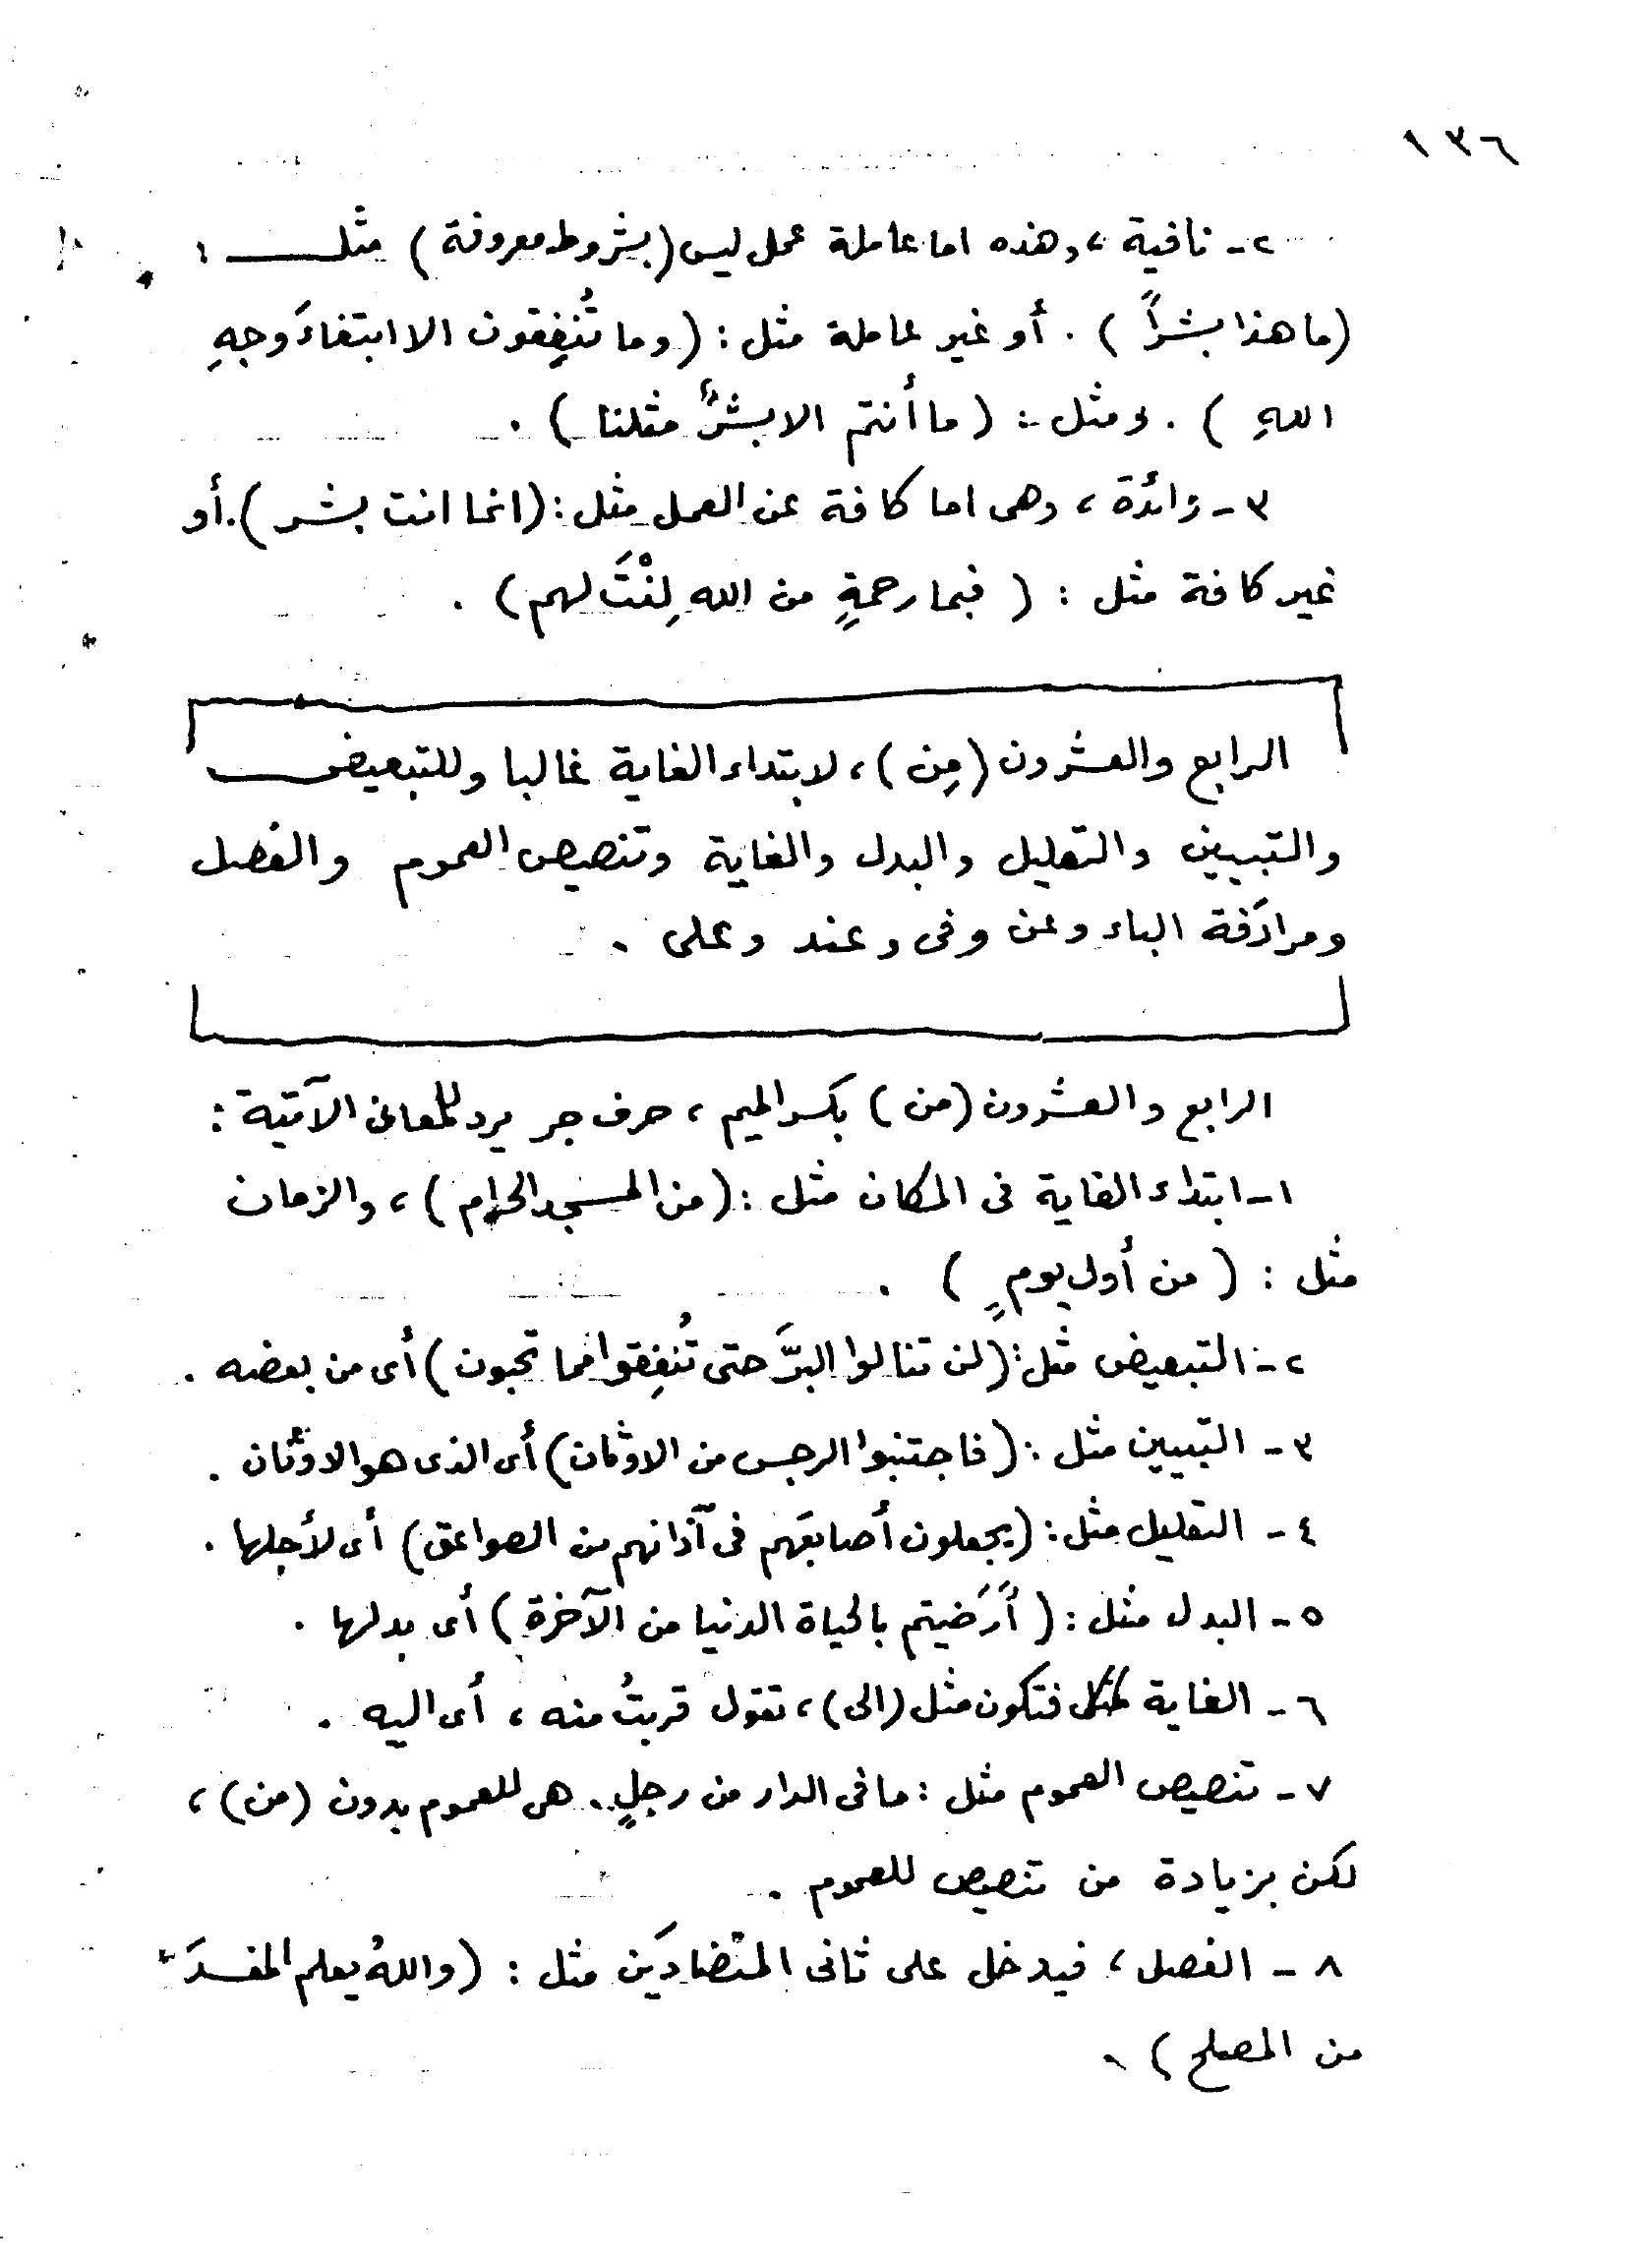 ١٣٦
٢- نافية ، وهذه اما عاملة عمل ليس (بشروط معروفة) مثل :
(ما هذا بشراً) . أو غير عاملة مثل : (وما تُنفِقون الا ابتغاءَ وجهِ
اللهِ) . ومثل : (ما أنتم الا بشرٌ مثلنا) .
٣- زائدة ، وهى اما كافة عن العمل مثل : (انما انت بشر) . أو
غير كافة مثل : (فبما رحمةٍ من الله لِنْتَ لهم) .
الرابع والعشرون (مِن) ، لابتداء الغاية غالبا وللتبعيض
والتبيين والتعليل والبدل والغاية وتنصيص العموم والفصل
ومرادَفة الباء وعن وفى وعند وعلى .
الرابع والعشرون (من) بكسر الميم ، حرف جر يرد للمعانى الآتية :
١- ابتداء الغاية فى المكان مثل : (من المسجد الحرام) ، والزمان
مثل : (من أول يومٍ) .
٢- التبعيض مثل : (لن تنالوا البرَّ حتى تُنفِقوا مما تحبون) أى من بعضه .
٣- التبيين مثل : (فاجتنبوا الرجس من الاوثان) أى الذى هو الاوثان .
٤- التعليل مثل : (يجعلون أصابعَهم فى آذانهم من الصواعق) أى لأجلها .
٥- البدل مثل : (أَرَضيتم بالحياة الدنيا من الآخرة) أى بدلها .
٦- الغاية فتكون مثل (الى) ، تقول قربتُ منه ، أى اليه .
٧- تنصيص العموم مثل : ما فى الدار من رجلٍ . هى للعموم بدون (من) ،
لكن بزيادة من تنصيص للعموم .
٨- الفصل ، فيدخل على ثانى المتضادَين مثل : (واللهُ يعلم المفسدَ
من المصلح) .